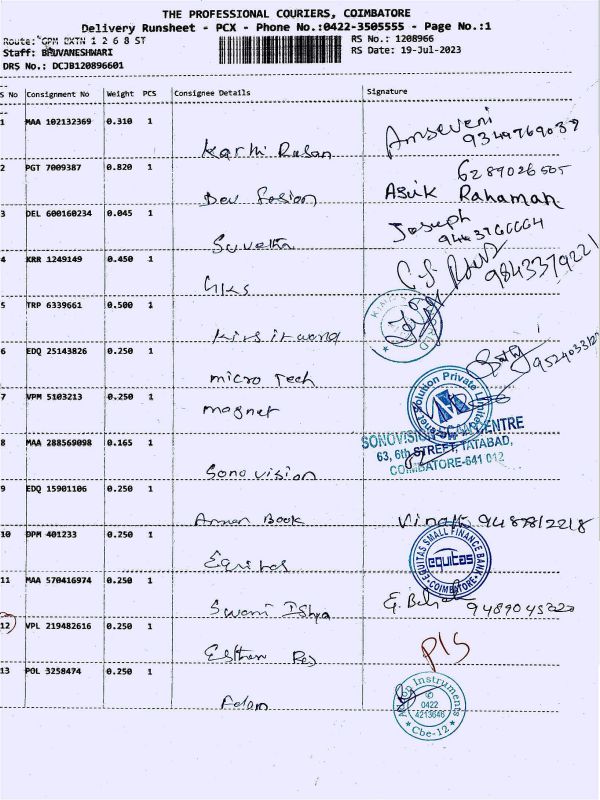 THE PROFESSIONAL COURIERS, COIMBATORE
Delivery Runsheet - PCX - Phone No.:0422-3505555 - Page No.:1
Route: GPM EXTN 1 2 6 8 ST RS No.: 1208966
Staff: BHUVANESHWARI RS Date: 19-Jul-2023
DRS No.: DCJB120896601
S No Consignment No Weight PCS Consignee Details Signature
1 MAA 102132369 0.310 1
9349769039
2 PGT 7009387 0.820 1 6289026505
Dev fasion Asik Rahaman
3 DEL 600160234 0.045 1 Joseph
Suvetha
4 KRR 1249149 0.450 1 9843379221
GKS
5 TRP 6339661 0.500 1
Kirs it world
6 EDQ 25143826 0.250 1
micro Tech
7 VPM 5103213 0.250 1 Solution Private Limited
magnet
SONOVISION SCAN CENTRE
8 MAA 288569098 0.165 1 63, 6th STREET, TATABAD,
COIMBATORE-641 012
Sono vision
9 EDQ 15901106 0.250 1
Book 9487812218
10 DPM 401233 0.250 1 EQUITAS SMALL FINANCE BANK
equitas
COIMBATORE
Equitas
11 MAA 570416974 0.250 1
Swami 9489045220
12) VPL 219482616 0.250 1
Esther
13 POL 3258474 0.250 1 Instruments
0422
4213646
Adam
Cbe-12